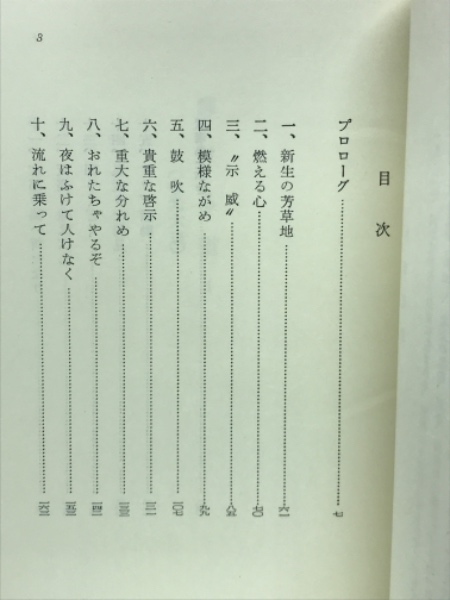 目次
プロローグ……七
一、新生の芳草地……六一
二、燃える心……七〇
三、〝示威〟……八五
四、模様ながめ……九九
五、鼓吹……一〇七
六、貴重な啓示……一二一
七、重大な分れめ……一三三
八、おれたちゃやるぞ……一四二
九、夜はふけて人けなく……一五三
十、流れに乗って……一六三
3